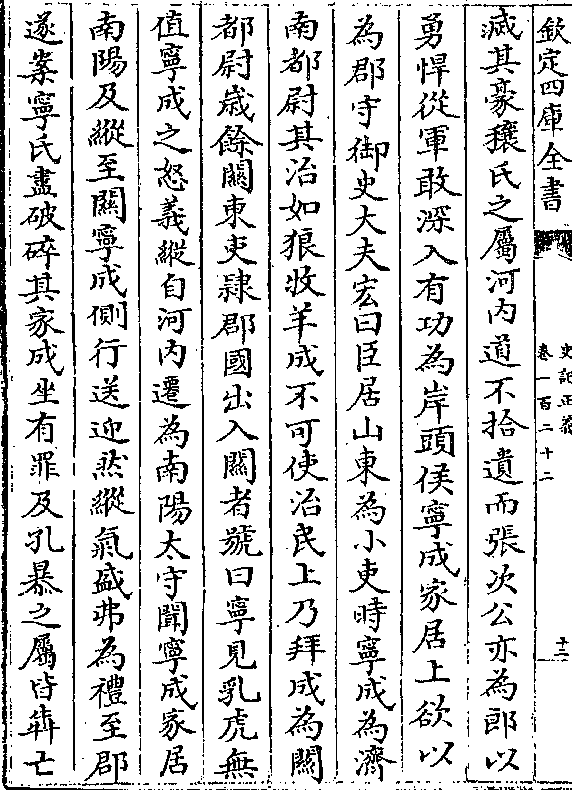 欽定四庫全書
史記正義
卷一百二十二
十三
滅其豪穰氏之屬河內道不拾遺而張次公亦為郎以
勇悍從軍敢深入有功為岸頭侯寧成家居上欲以
為郡守御史大夫宏曰臣居山東為小吏時寧成為濟
南都尉其治如狼牧羊成不可使治民上乃拜成為關
都尉歲餘關東吏隸郡國出入關者號曰寧見乳虎無
值寧成之怒義縱自河內遷為南陽太守聞寧成家居
南陽及縱至關寧成側行送迎然縱氣盛弗為禮至郡
遂案寧氏盡破碎其家成坐有罪及孔暴之屬皆犇亡